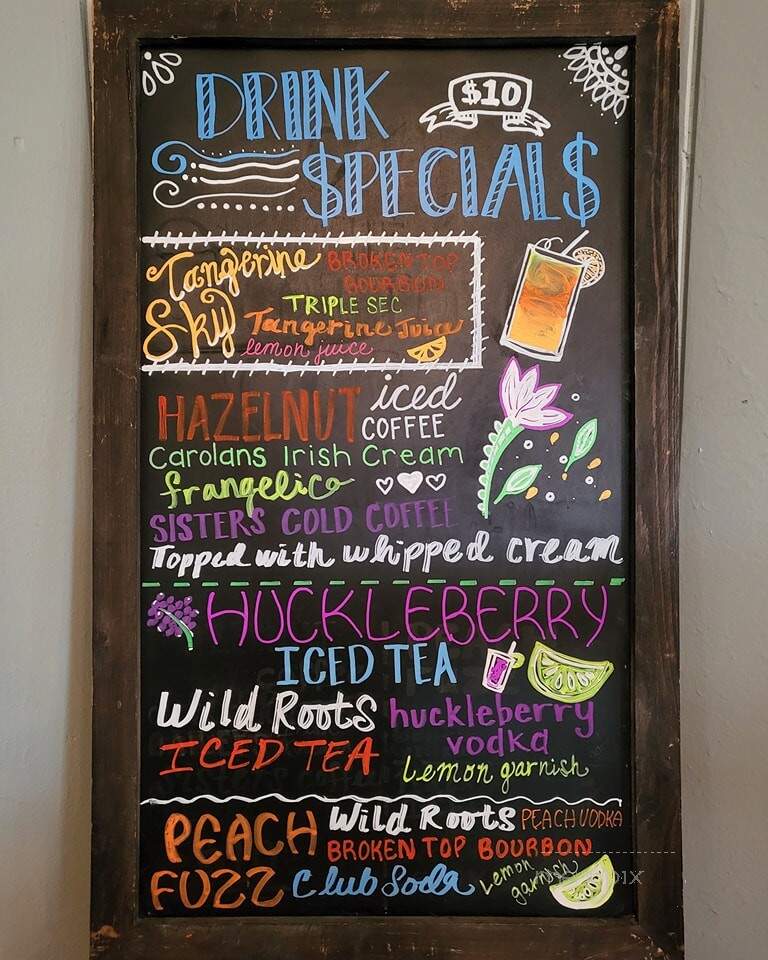 DRINK $10
$PECIAL$
Tangerine BROKEN TOP
BOURBON
Sky TRIPLE SEC
Tangerine Juice
lemon juice
HAZELNUT iced
COFFEE
Carolans Irish Cream
frangelico
SISTERS COLD COFFEE
Topped with whipped cream
HUCKLEBERRY
ICED TEA
Wild Roots huckleberry
ICED TEA vodka
Lemon garnish
PEACH Wild Roots PEACH VODKA
BROKEN TOP BOURBON
FUZZ Club Soda Lemon
garnish